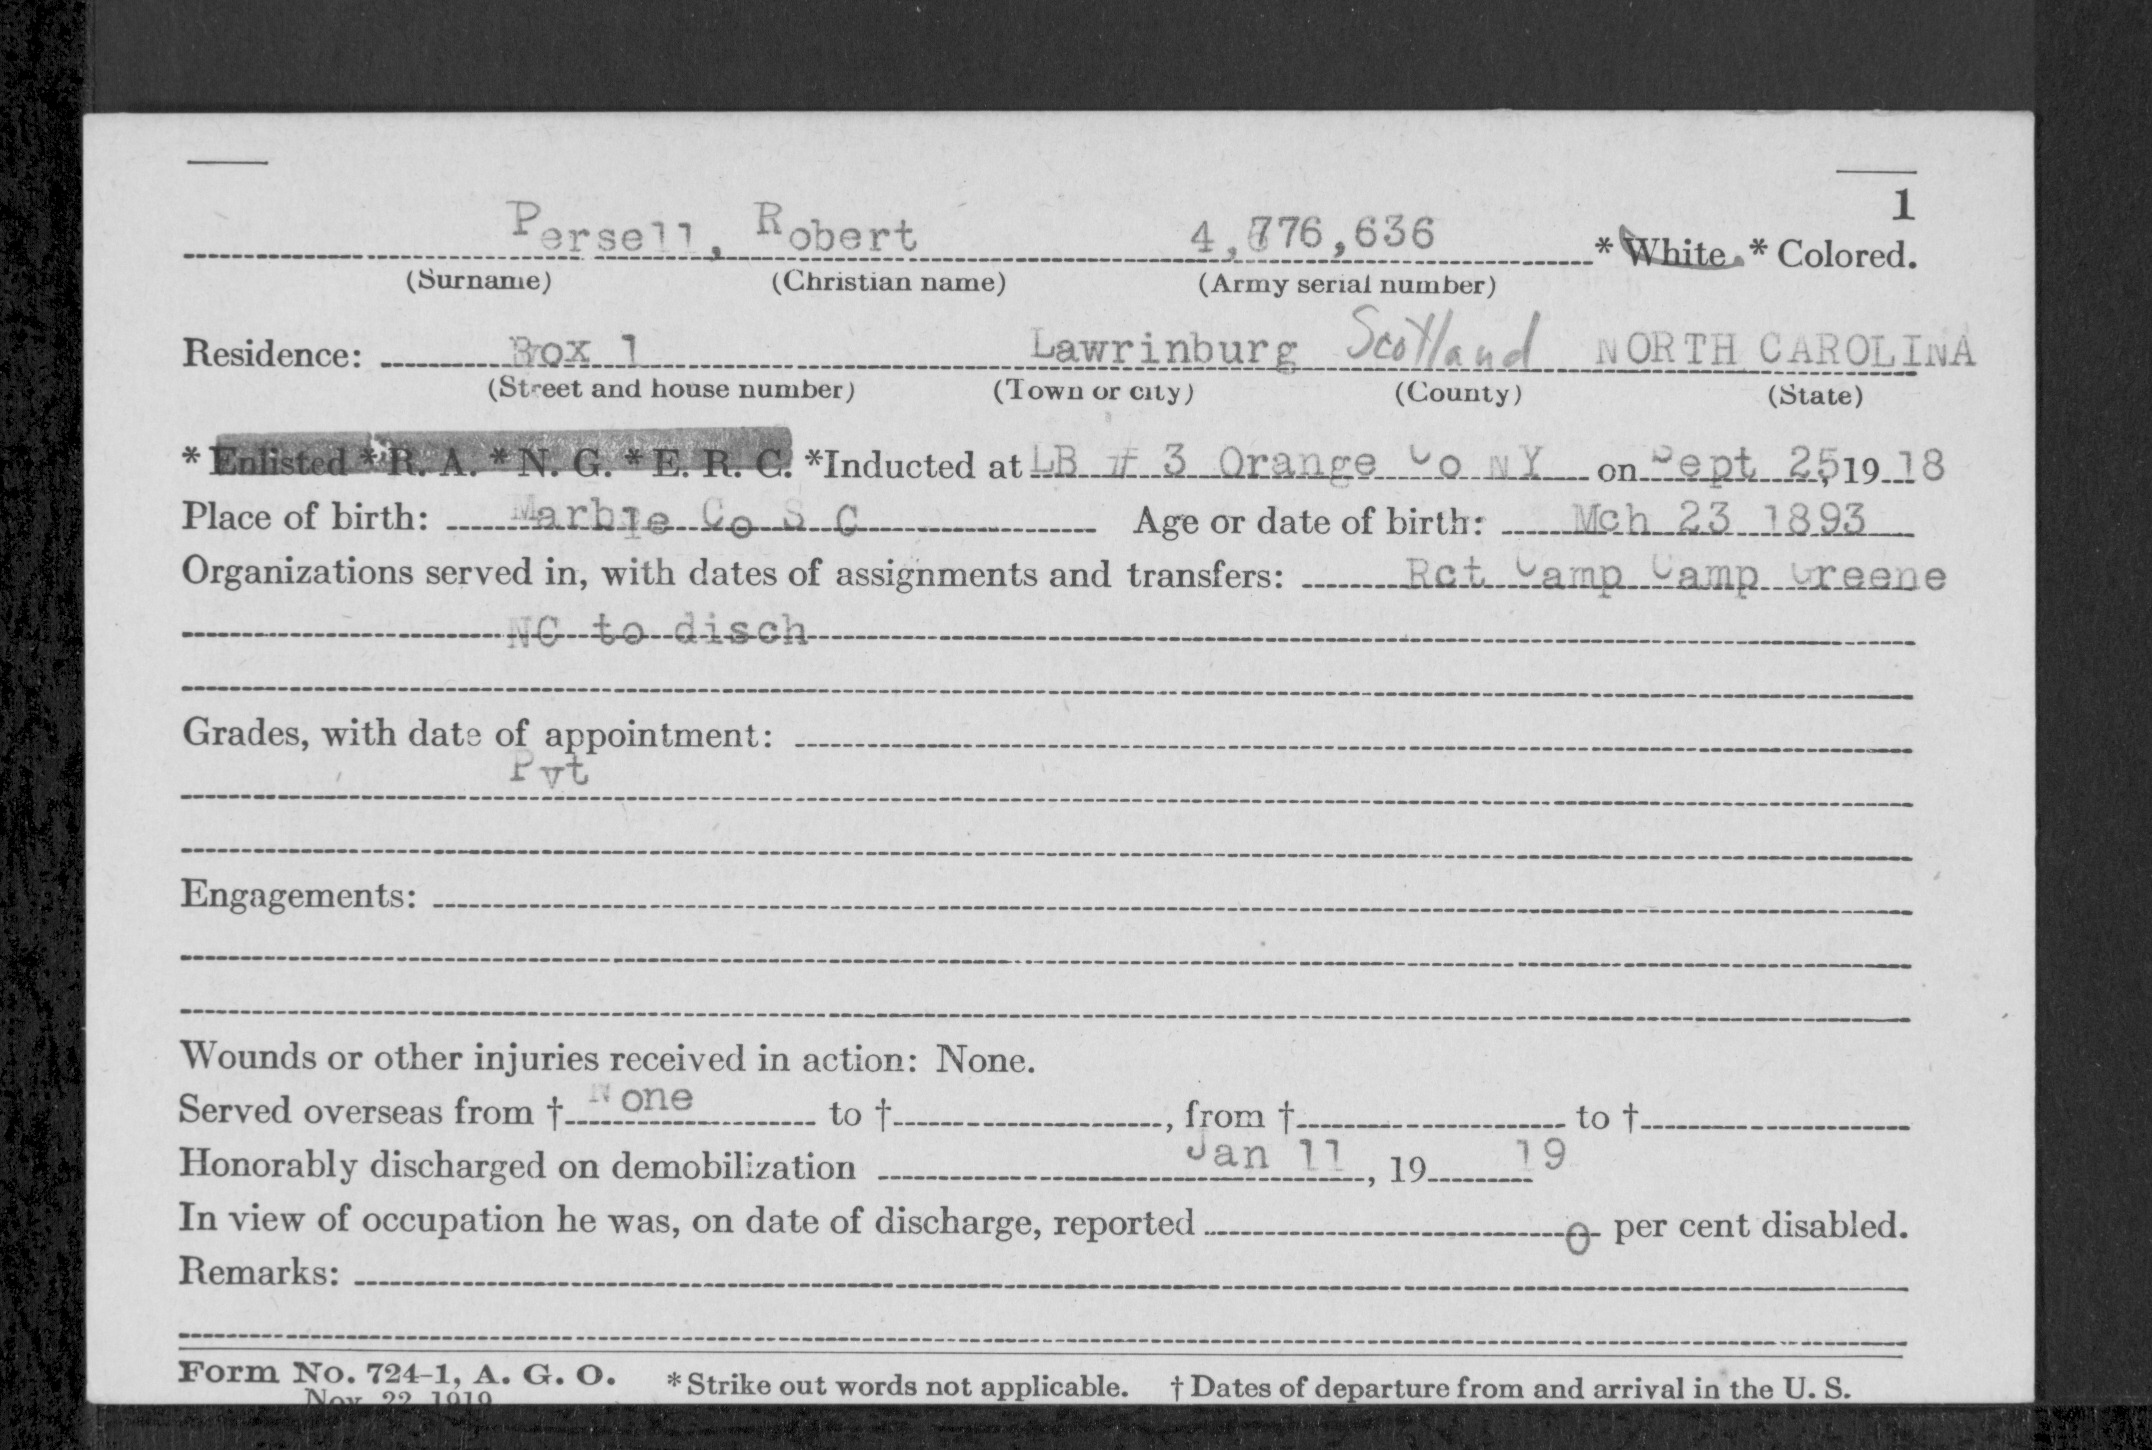 1
Persell, Robert 4,776,636 * White * Colored.
(Surname) (Christian name) (Army serial number)
Residence: Box 1 Lawrinburg Scotland NORTH CAROLINA
(Street and house number) (Town or city) (County) (State)
* Enlisted * R. A. * N. G. * E. R. C. *Inducted at LB # 3 Orange Co NY on Sept 25, 19 18
Place of birth: Marble Co S C Age or date of birth: Mch 23 1893
Organizations served in, with dates of assignments and transfers: Rct Camp Camp Greene
NC to disch
Grades, with date of appointment:
Pvt
Engagements:
Wounds or other injuries received in action: None.
Served overseas from † None to † , from † to †
Honorably discharged on demobilization Jan 11, 19 19
In view of occupation he was, on date of discharge, reported 0 per cent disabled.
Remarks:
Form No. 724-1, A. G. O. * Strike out words not applicable. † Dates of departure from and arrival in the U. S.
Nov. 22, 1919